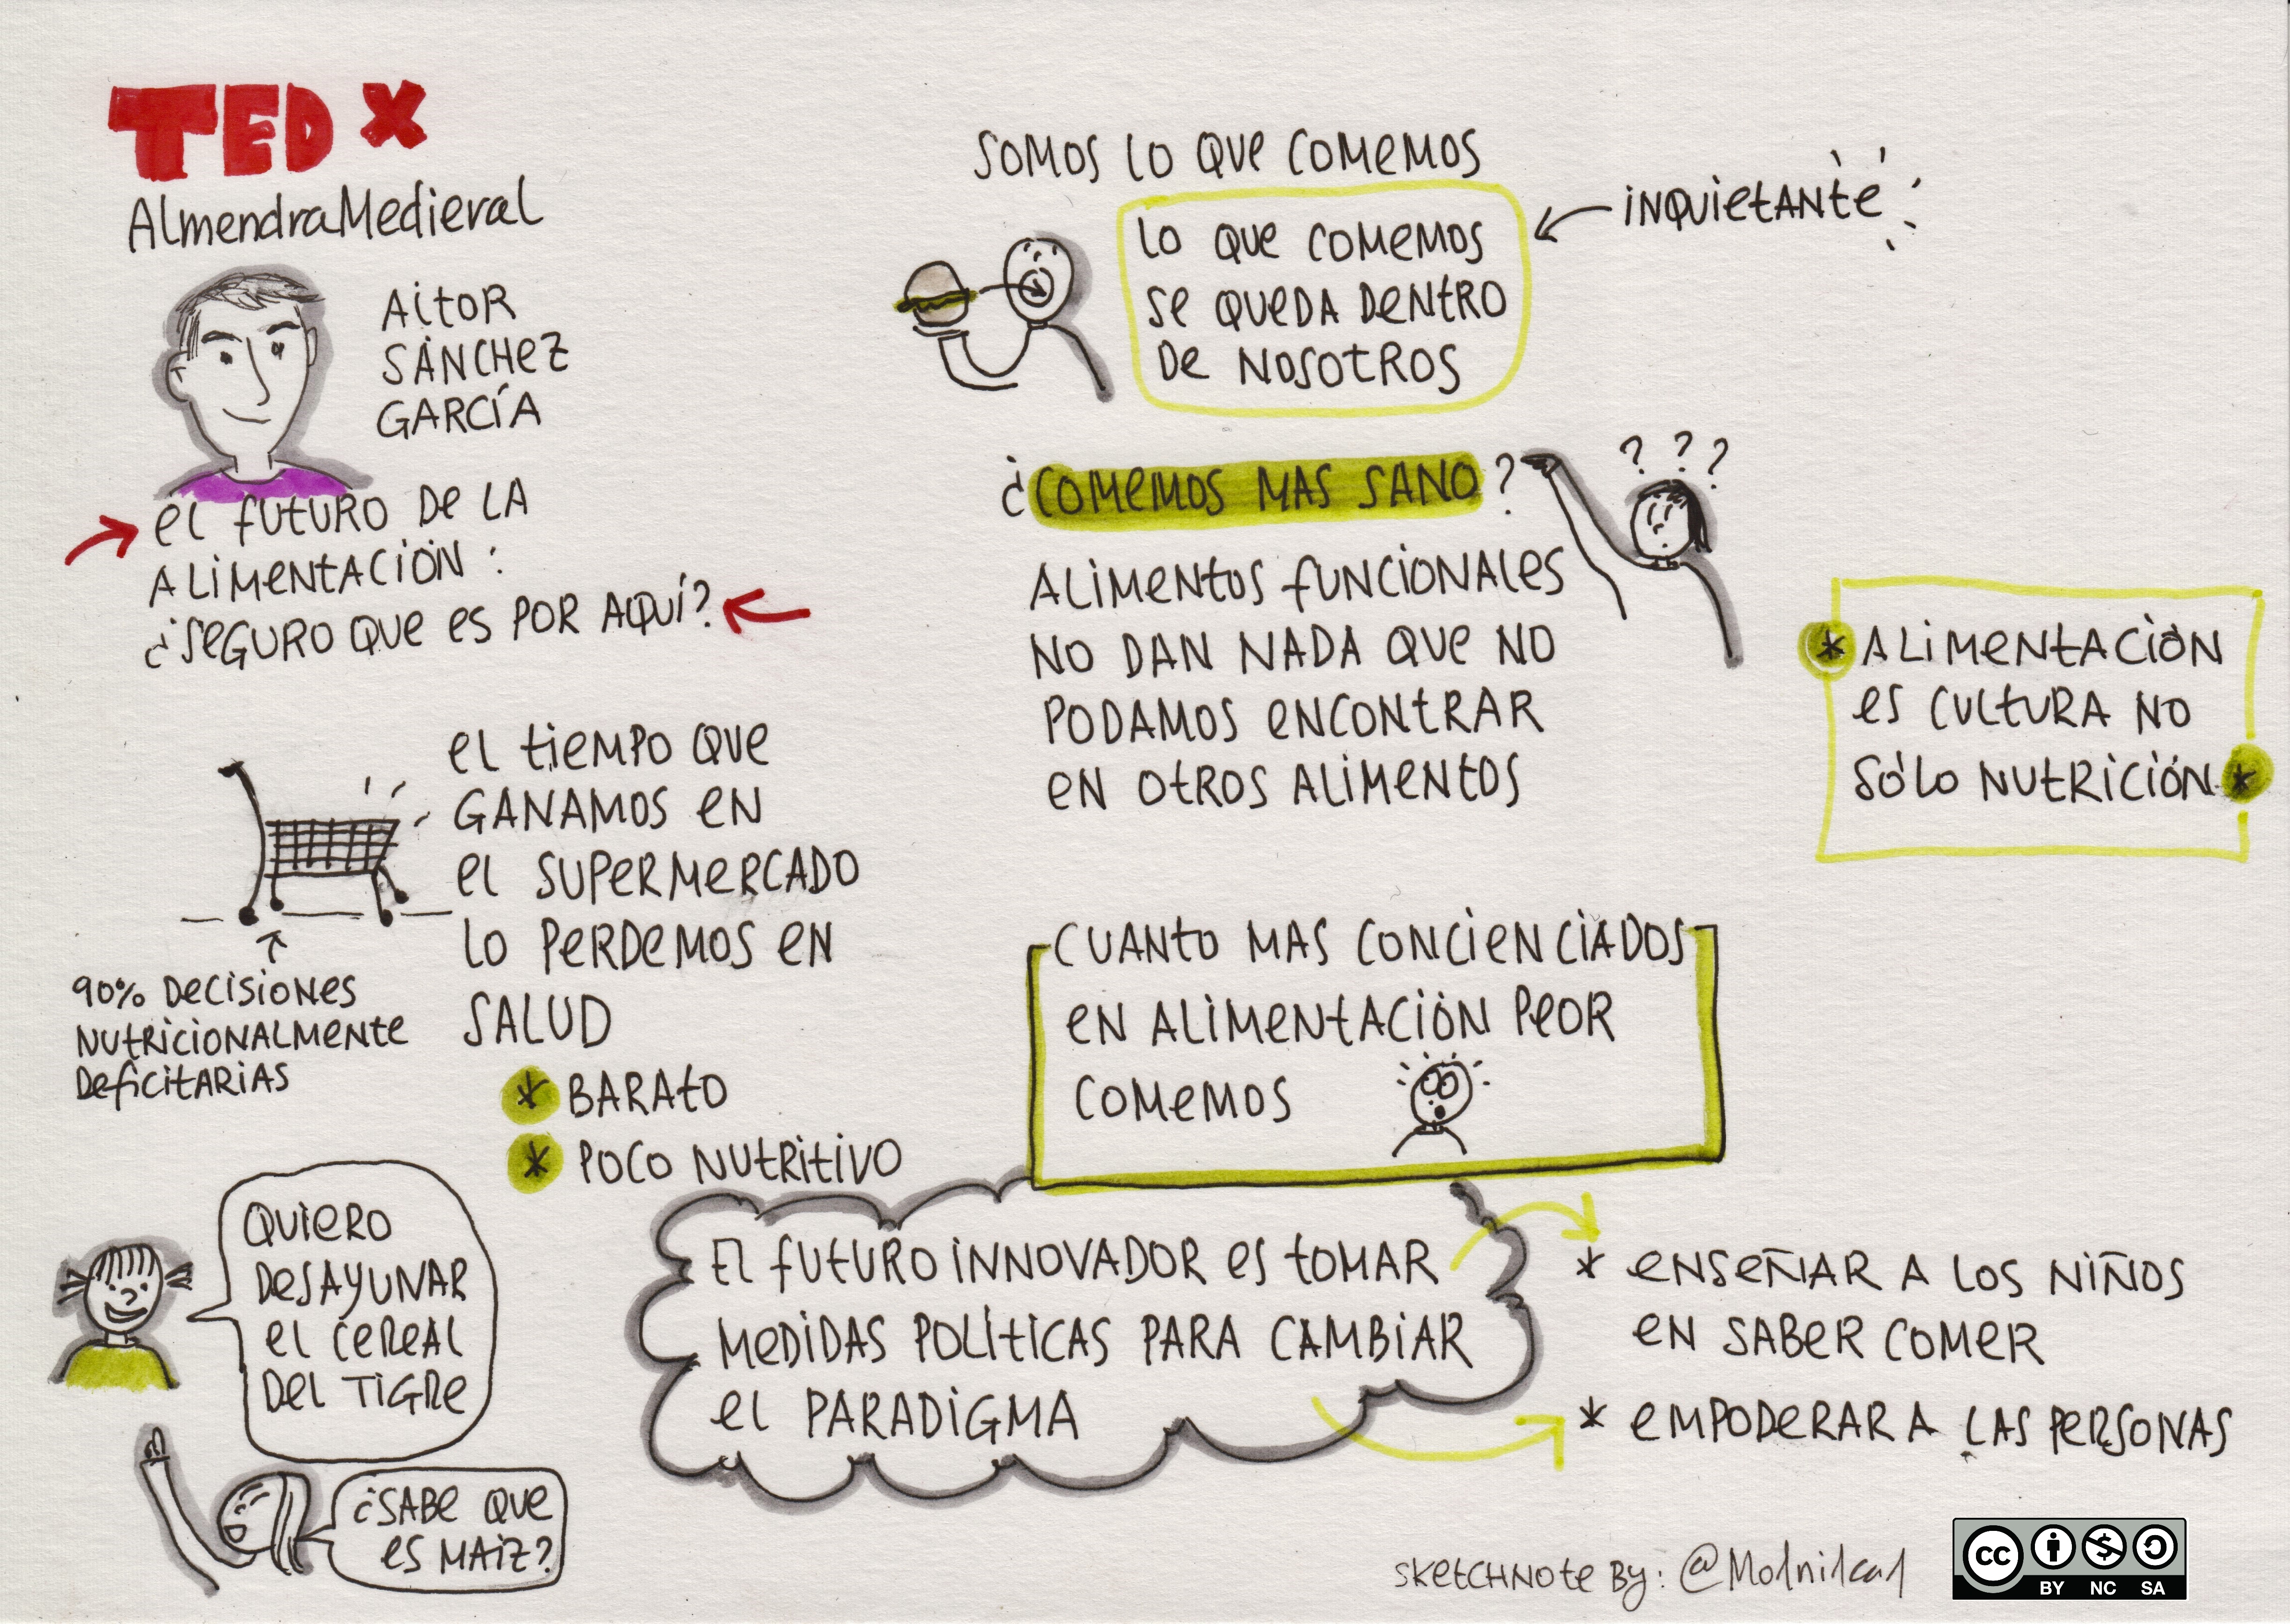 TEDx
AlmendraMedieval
AitOR
SÁNCHEZ
GARCÍA
el futuro de la
alimentación:
¿seguro que es por aquí?
el tiempo que
ganamos en
el supermercado
lo perdemos en
salud
* barato
* poco nutritivo
90% decisiones
nutricionalmente
deficitarias
Quiero
desayunar
el cereal
del tigre
¿Sabe que
es maiz?
somos lo que comemos
lo que comemos
se queda dentro
de nosotros
inquietante
¿comemos mas sano?
? ? ?
alimentos funcionales
no dan nada que no
podamos encontrar
en otros alimentos
* alimentación
es cultura no
sólo nutrición *
cuanto mas concienciados
en alimentación peor
comemos
El futuro innovador es tomar
medidas políticas para cambiar
el paradigma
* enseñar a los niños
en saber comer
* empoderar a las personas
sketchnote by:
cc BY NC SA